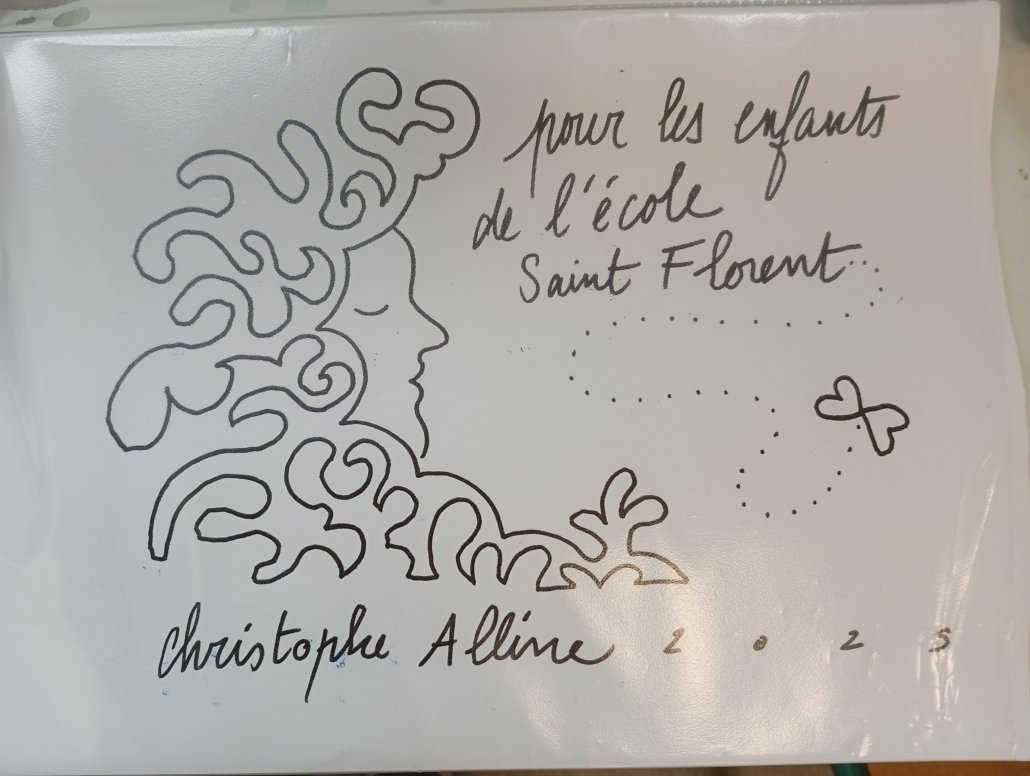 pour les enfants
de l'école
Saint Florent...
Christophe Alline 2025